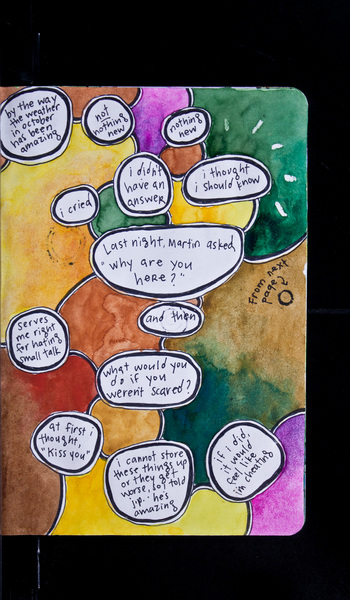 by the way
the weather
in october
has been
amazing
not
nothing
new
nothing
new
i didn't
have an
answer
i thought
i should know
i cried
Last night, Martin asked,
"why are you
here?"
From next
page
and then
serves
me right
for hating
small talk
what would you
do if you
weren't scared?
at first i
thought,
"kiss you"
i cannot store
these things up
or they get
worse, so i told
jp... he's
amazing
if i did,
it would
feel like
i'm cheating